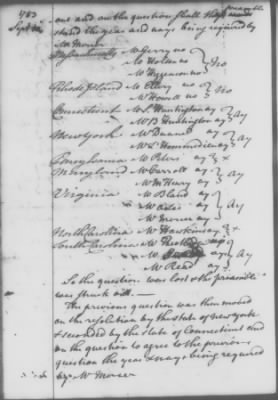 1783
Sept
one and on the question shall the preamble
stand the yeas and nays being required by
Mr Mercer
Massachusetts Mr Gerry no
Mr Holten no } No
Mr Higginson no
Rhode Island Mr Ellery no } No
Mr Howell no
Connecticut Mr S Huntington ay } Ay
Mr B Huntington ay
New York Mr Duane ay } Ay
Mr L Hommedieu ay
Pennsylvania Mr Peters ay } x
Maryland Mr Carroll ay } Ay
Mr McHenry ay
Virginia Mr Bland ay
Mr Lee ay } Ay
Mr Mercer ay
North Carolina Mr Hawkins ay } x
South Carolina Mr
Mr ay } Ay
Mr Read ay
So the question was lost & the preamble
was struck out.—
The previous question was then moved
on the resolution by the state of New York
& seconded by the state of Connecticut and
on the question to agree to the previous
question the yeas & nays being required
by Mr Mercer